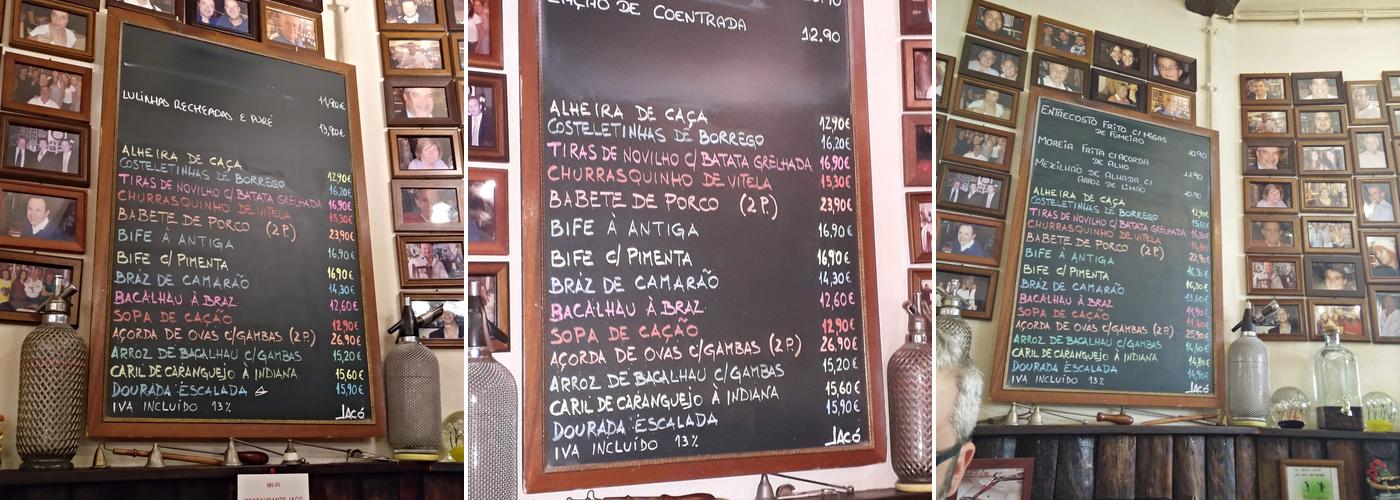 LULINHAS RECHEADAS E PURÉ 11,90€
13,90€
ALHEIRA DE CAÇA 12,90€
COSTELETINHAS DE BORREGO 16,20€
TIRAS DE NOVILHO C/ BATATA GRELHADA 16,90€
CHURRASQUINHO DE VITELA 15,30€
BABETE DE PORCO (2 P.) 23,90€
BIFE À ANTIGA 16,90€
BIFE C/ PIMENTA 16,90€
BRÁZ DE CAMARÃO 14,30€
BACALHAU À BRAZ 12,60€
SOPA DE CAÇÃO 12,90€
AÇORDA DE OVAS C/GAMBAS (2 P.) 26,90€
ARROZ DE BACALHAU C/GAMBAS 15,20€
CARIL DE CARANGUEJO À INDIANA 15,60€
DOURADA ESCALADA 15,90€
IVA INCLUÍDO 13% JACÓ
Wi-Fi
RESTAURANTE JACO
DE COENTRADA 12.90
ALHEIRA DE CAÇA 12,90€
COSTELETINHAS DE BORREGO 16,20€
TIRAS DE NOVILHO C/ BATATA GRELHADA 16,90€
CHURRASQUINHO DE VITELA 15,30€
BABETE DE PORCO (2 P.) 23,90€
BIFE À ANTIGA 16,90€
BIFE C/ PIMENTA 16,90€
BRÁZ DE CAMARÃO 14,30€
BACALHAU À BRAZ 12,60€
SOPA DE CAÇÃO 12,90€
AÇORDA DE OVAS C/GAMBAS (2 P.) 26,90€
ARROZ DE BACALHAU C/GAMBAS 15,20€
CARIL DE CARANGUEJO À INDIANA 15,60€
DOURADA ESCALADA 15,90€
IVA INCLUÍDO 13% JACÓ
ENTRECOSTO FRITO C/ MIGAS
DE FUMEIRO 10.90
MOREIA FRITA C/ACORDA
DE ALHO 11.90
MEXILHÃO DE ALHADA C/
ARROZ DE LIMÃO 10.90
ALHEIRA DE CAÇA
COSTELETINHAS DE BORREGO
TIRAS DE NOVILHO C/ BATATA GRELHADA
CHURRASQUINHO DE VITELA
BABETE DE PORCO (2 P.) 22,90€
BIFE À ANTIGA
BIFE C/ PIMENTA
BRÁZ DE CAMARÃO
BACALHAU À BRAZ
SOPA DE CAÇÃO
AÇORDA DE OVAS C/GAMBAS (2 P.) 25,90€
ARROZ DE BACALHAU C/GAMBAS
CARIL DE CARANGUEJO À INDIANA
DOURADA ESCALADA
IVA INCLUÍDO 13% JACÓ